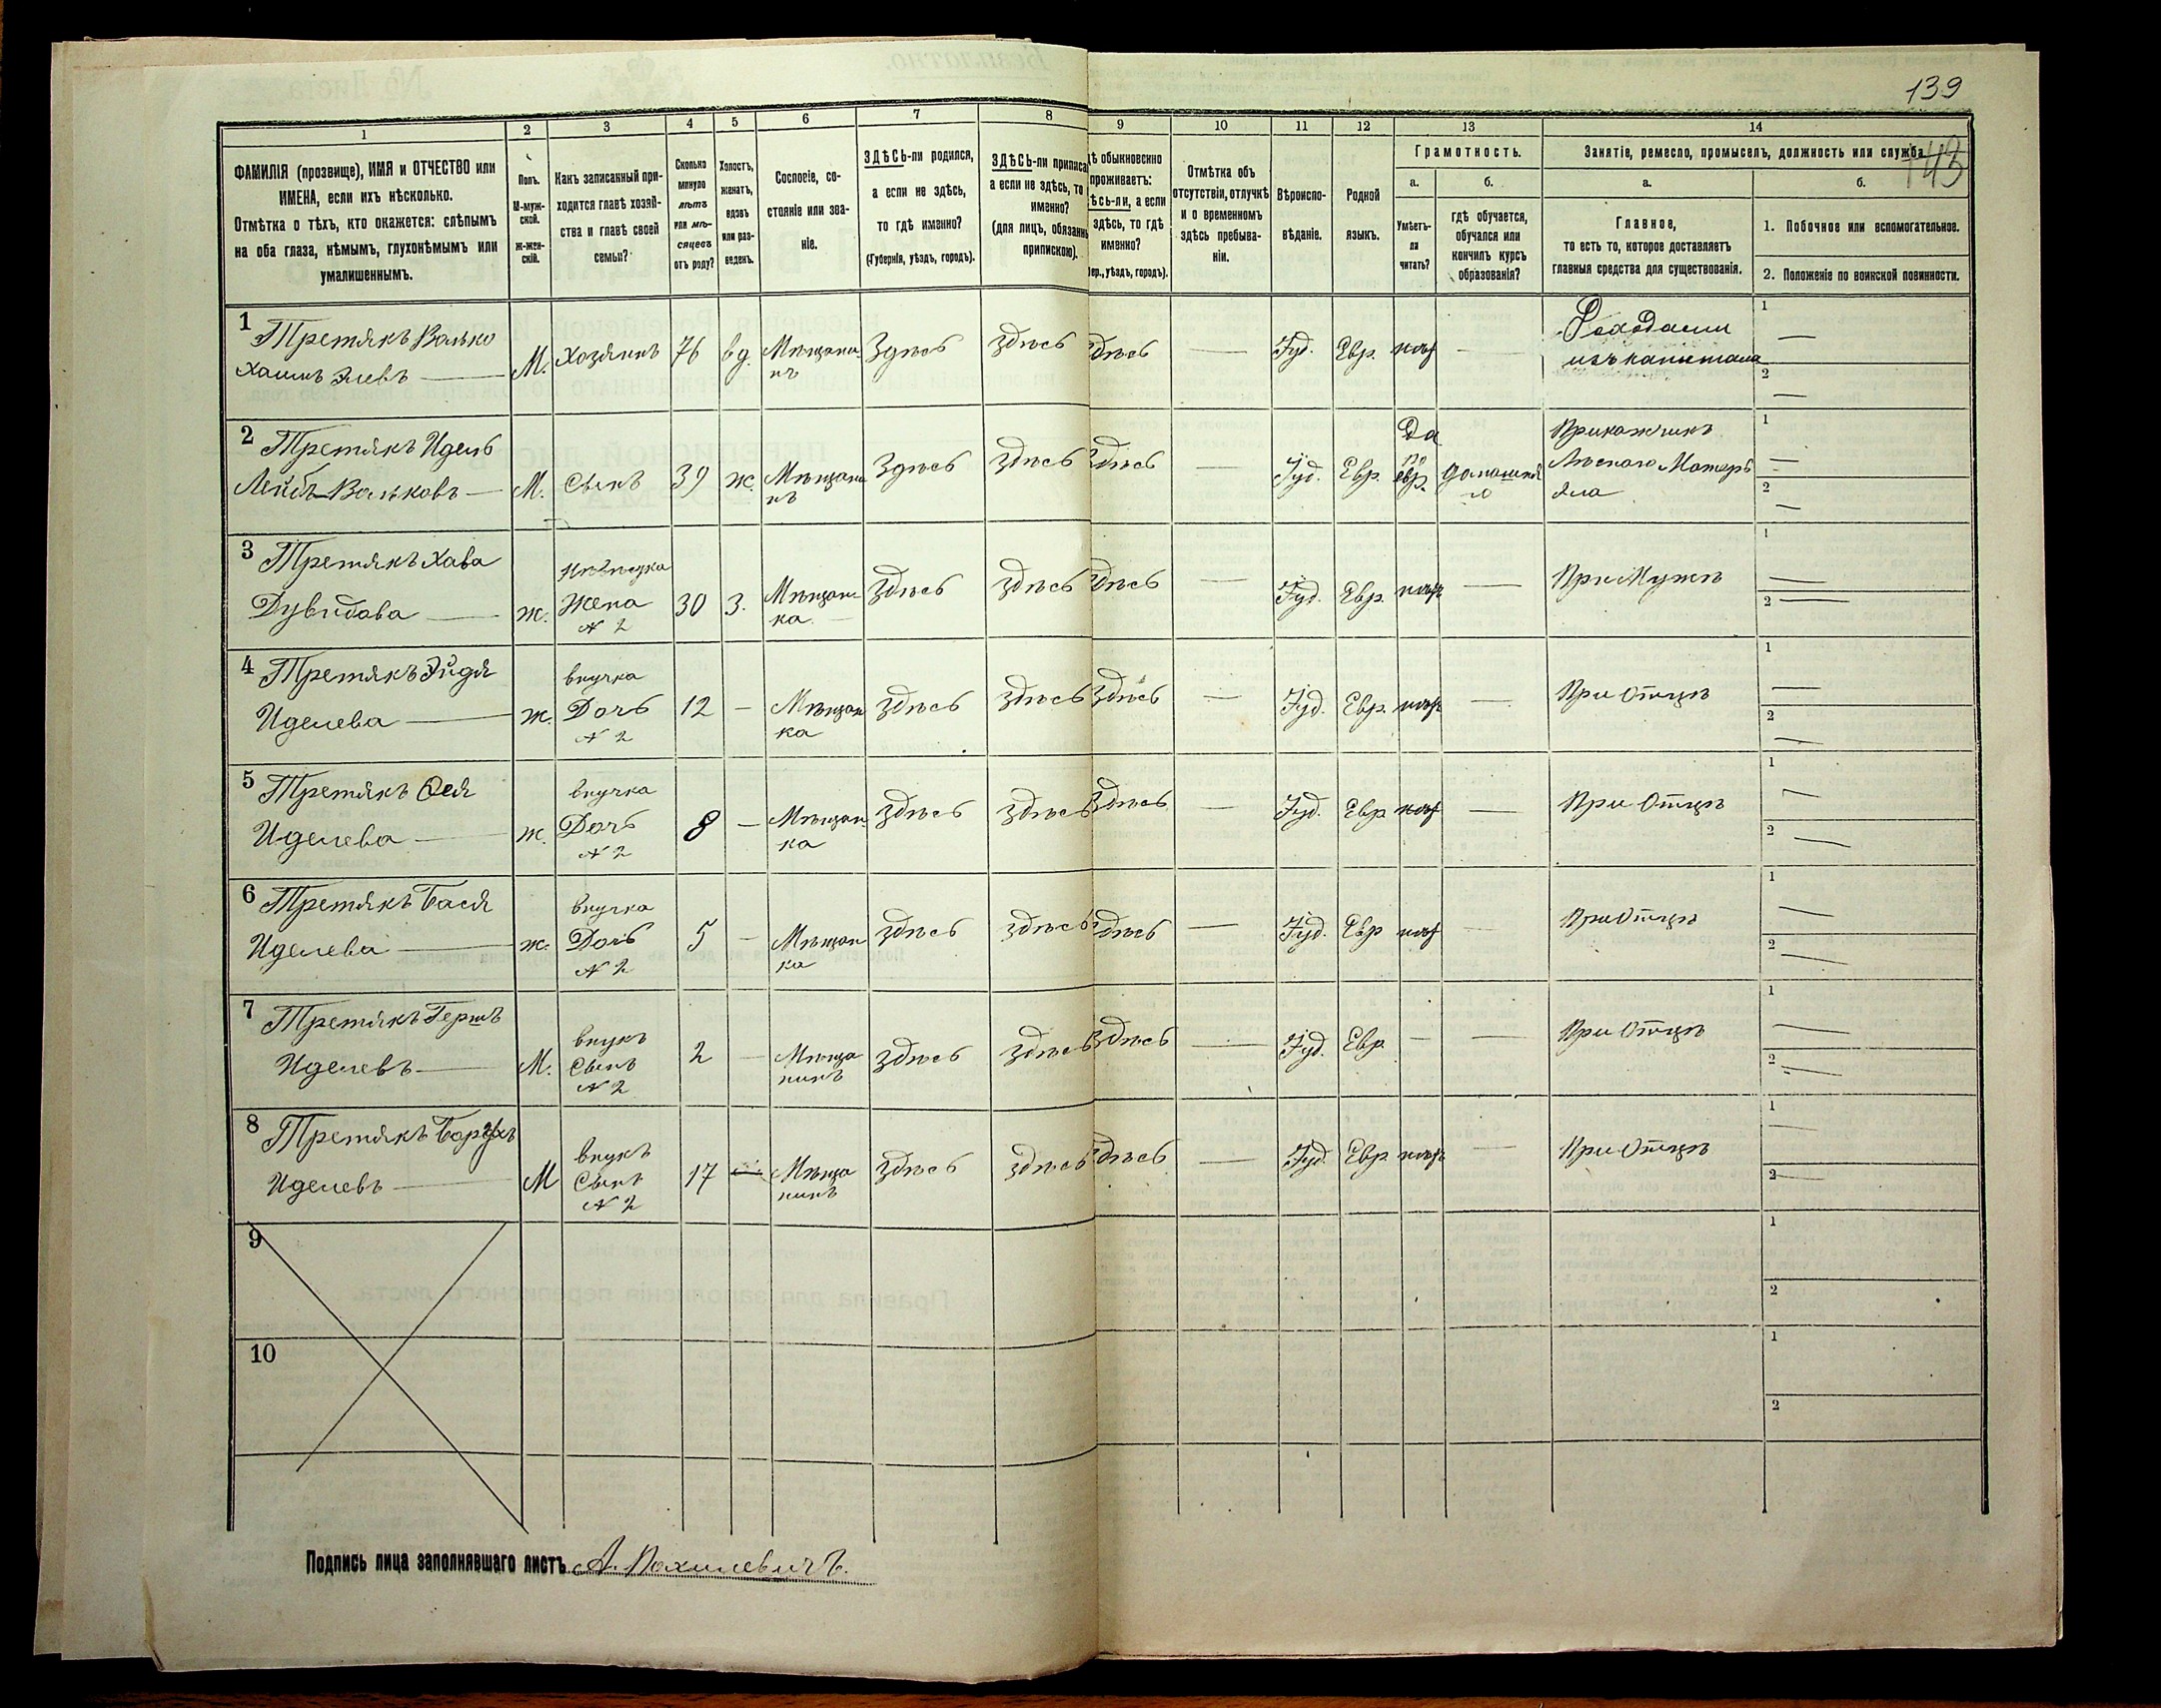 139
143
1 2 3 4 5 6 7 8 9 10 11 12 13 14
ФАМИЛІЯ (прозвище), ИМЯ и ОТЧЕСТВО или
ИМЕНА, если ихъ нѣсколько.
Отмѣтка о тѣхъ, кто окажется: слѣпымъ
на оба глаза, нѣмымъ, глухонѣмымъ или
умалишеннымъ.
Полъ.
М-муж-
ской.
Ж-жен-
скій.
Какъ записанный при-
ходится главѣ хозяй-
ства и главѣ своей
семьи?
Сколько
минуло
лѣтъ
или мѣ-
сяцевъ
отъ роду?
Холостъ,
женатъ,
вдовъ
или раз-
веденъ.
Сословіе, со-
стояніе или зва-
ніе.
ЗДѢСЬ-ли родился,
а если не здѣсь,
то гдѣ именно?
(Губернія, уѣздъ, городъ).
ЗДѢСЬ-ли приписа
а если не здѣсь, то
именно?
(для лицъ, обязанны
припискою).
дѣ обыкновенно
проживаетъ:
ѣсь-ли, а если
здѣсь, то гдѣ
именно?
бер., уѣздъ, городъ).
Отмѣтка объ
отсутствіи, отлучкѣ
и о временномъ
здѣсь пребыва-
ніи.
Вѣроиспо-
вѣданіе.
Родной
языкъ.
Грамотность.
а. б.
Умѣетъ-
ли
читать?
гдѣ обучается,
обучался или
кончилъ курсъ
образованія?
Занятіе, ремесло, промыселъ, должность или служба.
а. б.
Главное,
то есть то, которое доставляетъ
главныя средства для существованія.
1. Побочное или вспомогательное.
2. Положеніе по воинской повинности.
1 Третякъ Валько М. Хозяинъ 76 вд. Мѣщани- Здѣсь здѣсь здѣсь — Іуд. Евр. нѣт — Доходами 1 —
нъ изъ капитала 2 —
2 Третякъ Идель М. Сынъ 39 ж. Мѣщани Здѣсь здѣсь здѣсь — Іуд. Евр. Да Прикажчикъ 1 —
Лейбъ Вальковъ — нъ по евр. Лѣсного Матерь 2 —
яла
3 Третякъ Хава ж. Жена 30 З. Мѣщан- Здѣсь здѣсь здѣсь — Іуд. Евр. нѣт — При Мужѣ 1 —
Дувидова — N 2 ка 2 —
4 Третякъ Эйдя внучка
Иделева — ж. Дочь 12 — Мѣщан здѣсь здѣсь здѣсь — Іуд. Евр. нѣт — При Отцѣ 1 —
N 2 ка 2 —
5 Третякъ внучка
Иделева — ж. Дочь 8 — Мѣщан здѣсь здѣсь здѣсь — Іуд. Евр нѣт — При Отцѣ 1 —
N 2 ка 2 —
6 Третякъ Бася внучка
Иделева — ж. Дочь 5 — Мѣщан здѣсь здѣсь здѣсь — Іуд. Евр нѣт — При Отцѣ 1 —
N 2 ка 2 —
7 Третякъ Гершъ внукъ
Иделевъ — М. Сынъ 2 — Мѣща здѣсь здѣсь здѣсь — Іуд. Евр — — При Отцѣ 1 —
N 2 нинъ 2 —
8 Третякъ Борухъ внукъ
Иделевъ — М Сынъ 17 — Мѣща здѣсь здѣсь здѣсь — Іуд. Евр нѣт — При Отцѣ 1 —
N 2 нинъ 2 —
9 1
2
10 1
2
Подпись лица заполнявшаго листъ А. Похилевичъ.